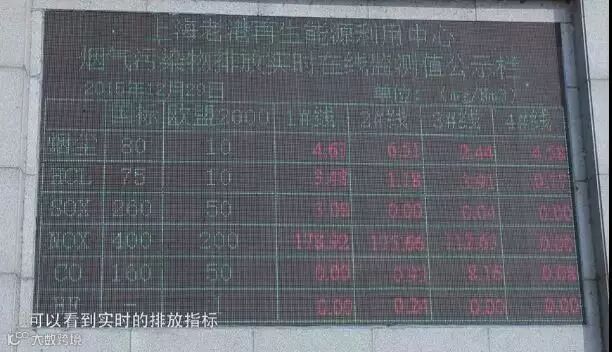 上海老港再生能源利用中心
烟气污染物排放实时在线监测值公示栏
2015年12月29日 单位:(mg/Nm3)
国标 欧盟2000 1#线 2#线 3#线 4#线
烟尘 80 10 4.61 0.51 2.44 4.58
HCL 75 10 3.48 1.18
SOX 260 50 3.08 0.00 0.04 0.00
NOX 400 200 0.00
CO 160 50 0.00 8.16 0.08
HF - 1 0.00 0.24 0.00 0.00
可以看到实时的排放指标
大数跨境